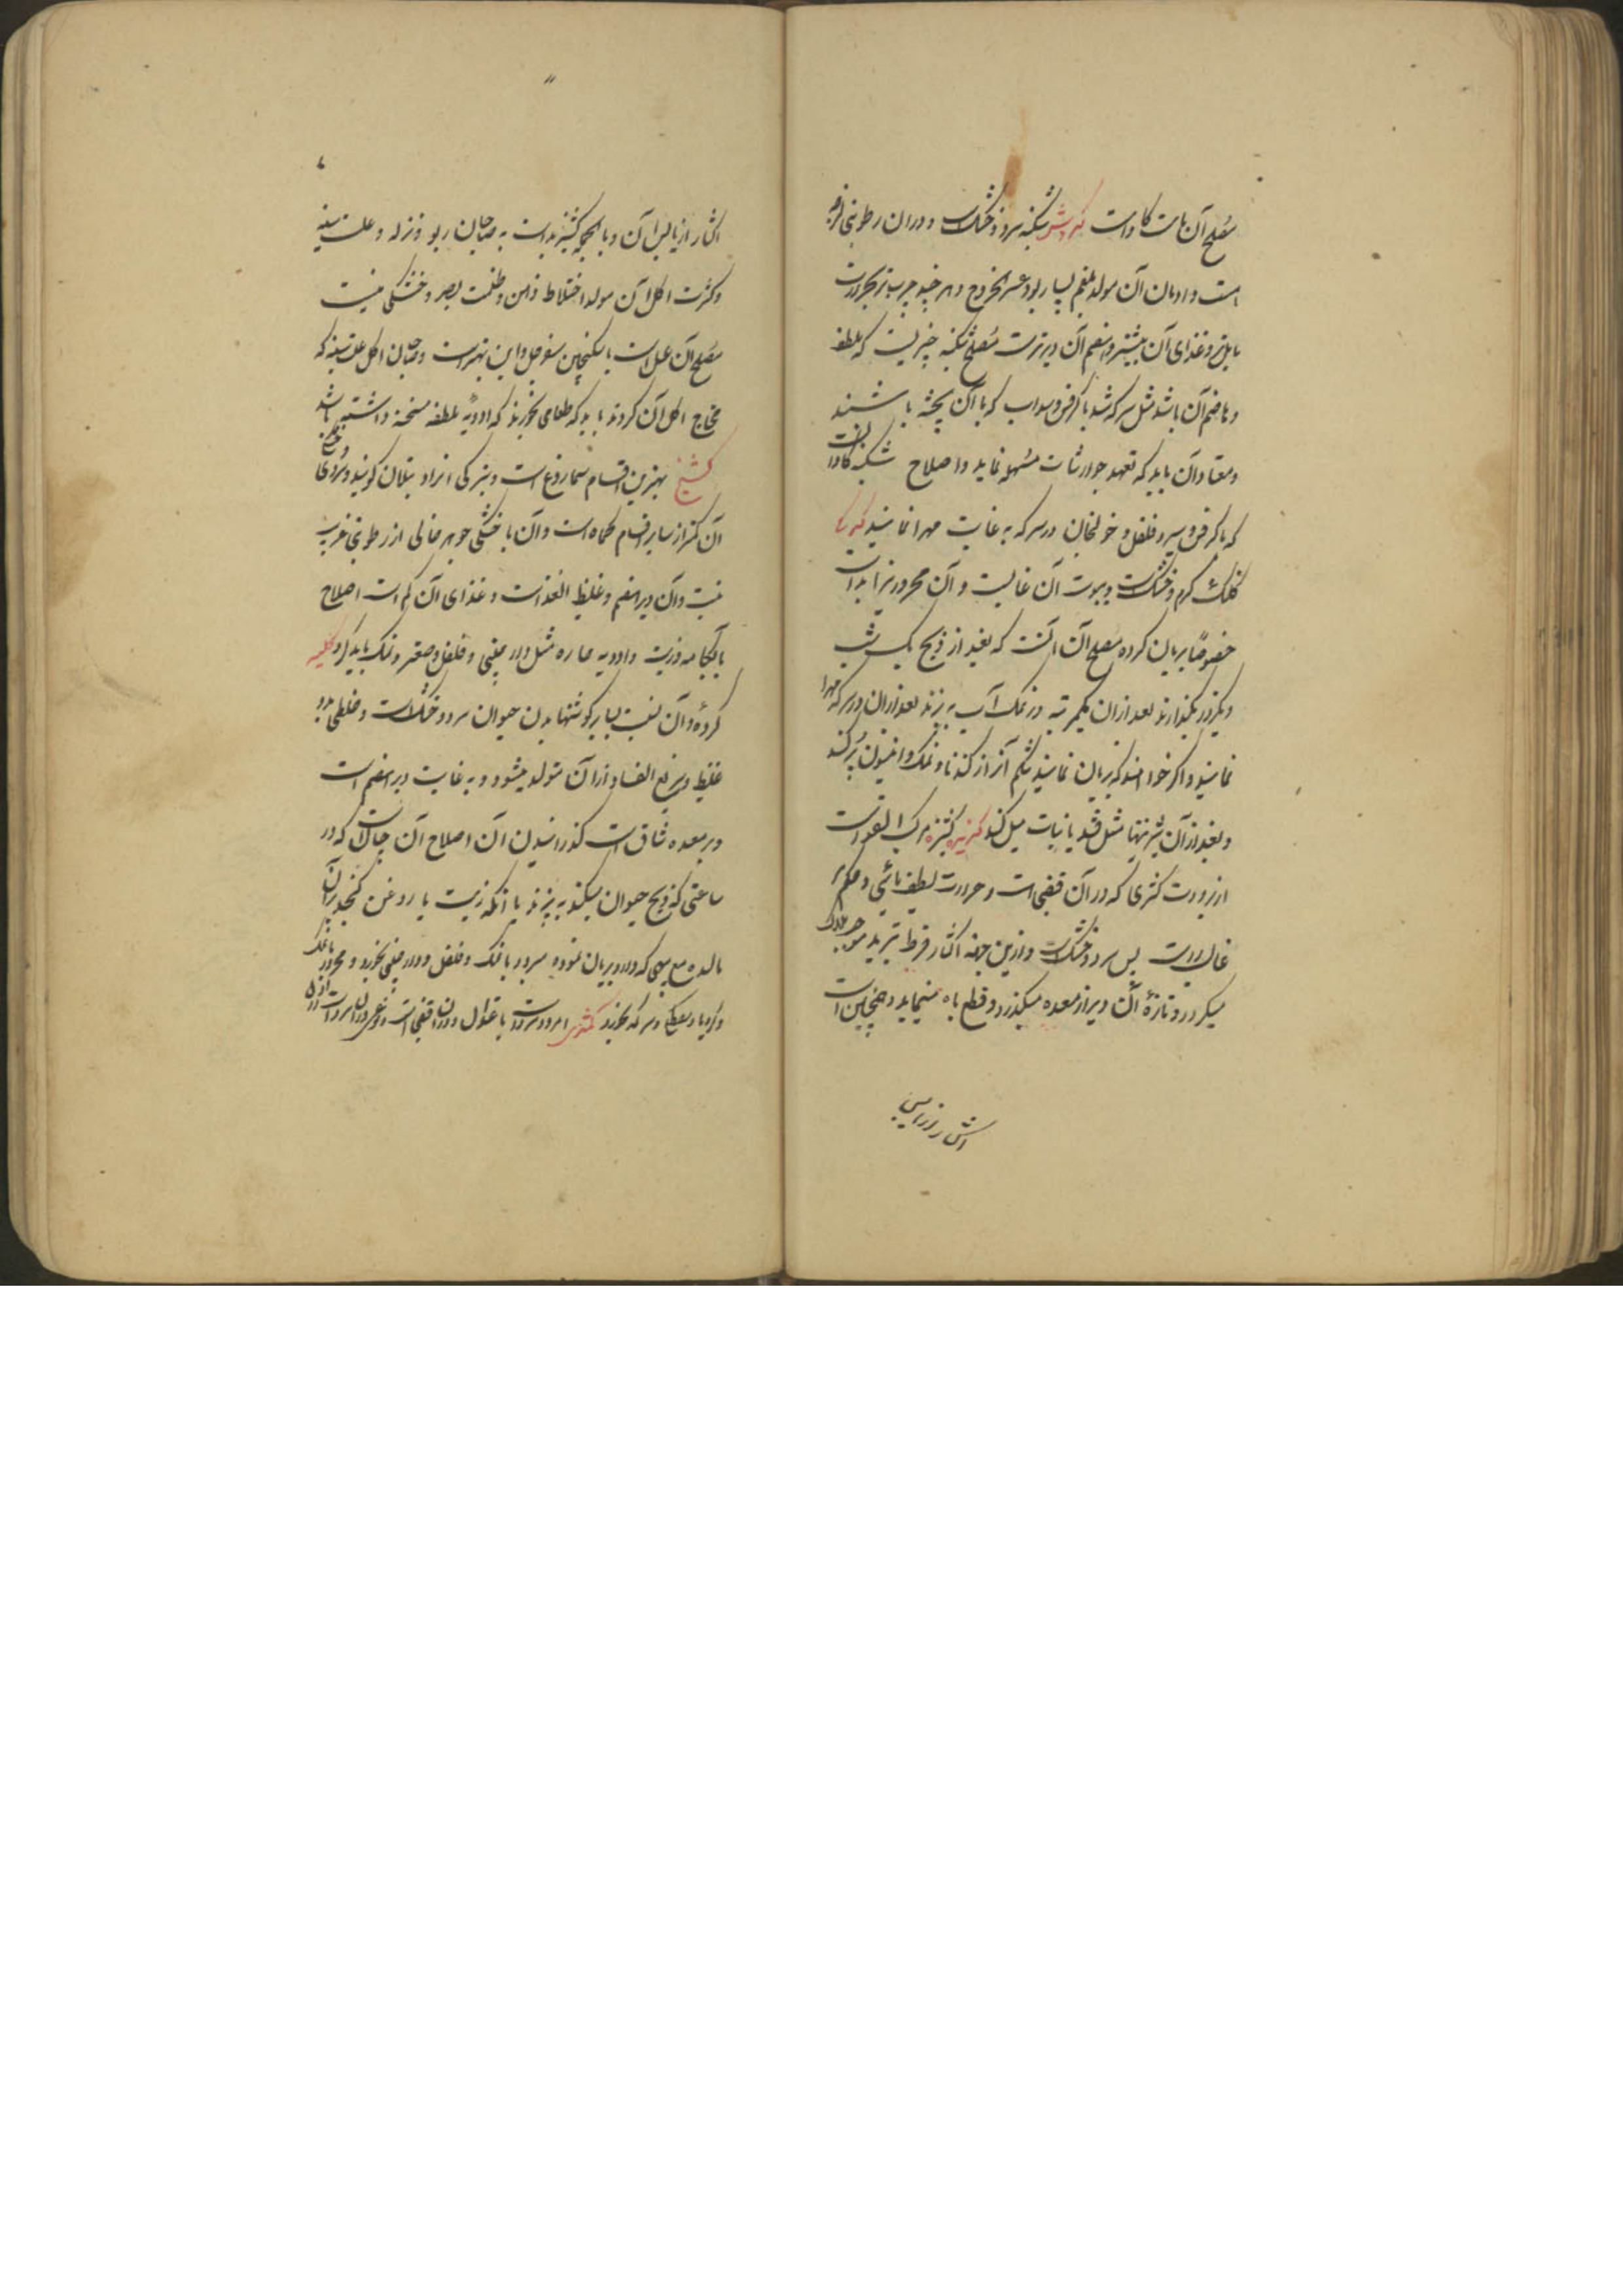 مصلح آن نبات کاواست کروش شکنبه سرد و خشکست و دران رطوبتی لزج
است و ادمان آن مولد بلغم بسیار بود و عسر الخروج و هر چند چرب تر بحرارت
مایل تر و غذای آن بیشتر و هضم آن دیرترست مصلح شکنبه چیزیست که ملطف
و هاضم آن باشد مثل سرکه شد با کرفس و سداب که با آن پخته باشند
و معتاد آن باید که تعهد جوارشات مسهله نماید و اصلاح شکنبه کاو آنست
که با کرفس و سیر و فلفل و خولنجان در سرکه به غایت مهرا نمایند
کلنک گرم و خشکست و یبوست آن غالبست و آن محرور نرا بداست
خصوصاً بریان کرده مصلح آن آنست که بعد از ذبح یک شب
و یکروز بگذارند بعد از ان یکمرتبه در نمک آب به پزند بعد ازان در سرکه مهرا
نمایند و اگر خواهند که بریان نمایند شکم آنرا از کندنا و نمک و انیسون پر کنند
و بعد از آن بشرینیها مثل قند یا نبات میل کنند کزبره کشنیز مرکب القواست
از برودت کثری که در آن قبضی است و حرارت لطیف مائی و حکم
غالب راست پس سرد و خشکست و ازین جهة اکثار فرط تبرید موجب هلاک
میگردد و تازهٔ آن دیر از معده میگذرد و قطع باه مینماید و همچنین است
اکثار از یابس
اکثار از یابس آن و بالجمله کشنیز بداست به صاحبان ربو و نزله و علت سینه
و کثرت اکل آن مولد اختلاط ذهن و ظلمت بصر و خشکی منیست
مصلح آن عسل است یا سکنجبین سفرجل و این بهتر است و صاحبان علت سینه که
محتاج اکل آن گردند باید که طعامی بخورند که ادویهٔ ملطفه مسخنه داشته باشد
کشنج بهترین اقسام سماروغ است و بترکی انراد تبلان گویند و سردی
آن کمتر از سایر اقسام کماه است و آن با خشکی جوهر خالی از رطوبتی غریب
نیست و آن دیر هضم و غلیظ الغذاست و غذای آن کم است اصلاح
بآبکامه و زیت و ادویه حاره مثل دار چینی و فلفل و صعتر و نمک باید کرد کلیه
گرده و آن نسبت بسایر گوشتها بدن حیوان سرد و خشک است و خلطی
غلیظ و سریع الفساد از آن متولد میشود و به غایت دیر هضم است
و بر معده شاق است گذرانیدن آن اصلاح آن چنانست که در
ساعتی که ذبح حیوان میکنند به پزند یا آنکه زیت یا روغن کنجد بر آن
مالیده مع پیهی که دارد بریان نموده سرد با نمک و فلفل و دار چینی بخورد و محرور با نمک
و کرویا و سرکه بخورد کمثری امرود سردست باعتدال و دران قبضی است